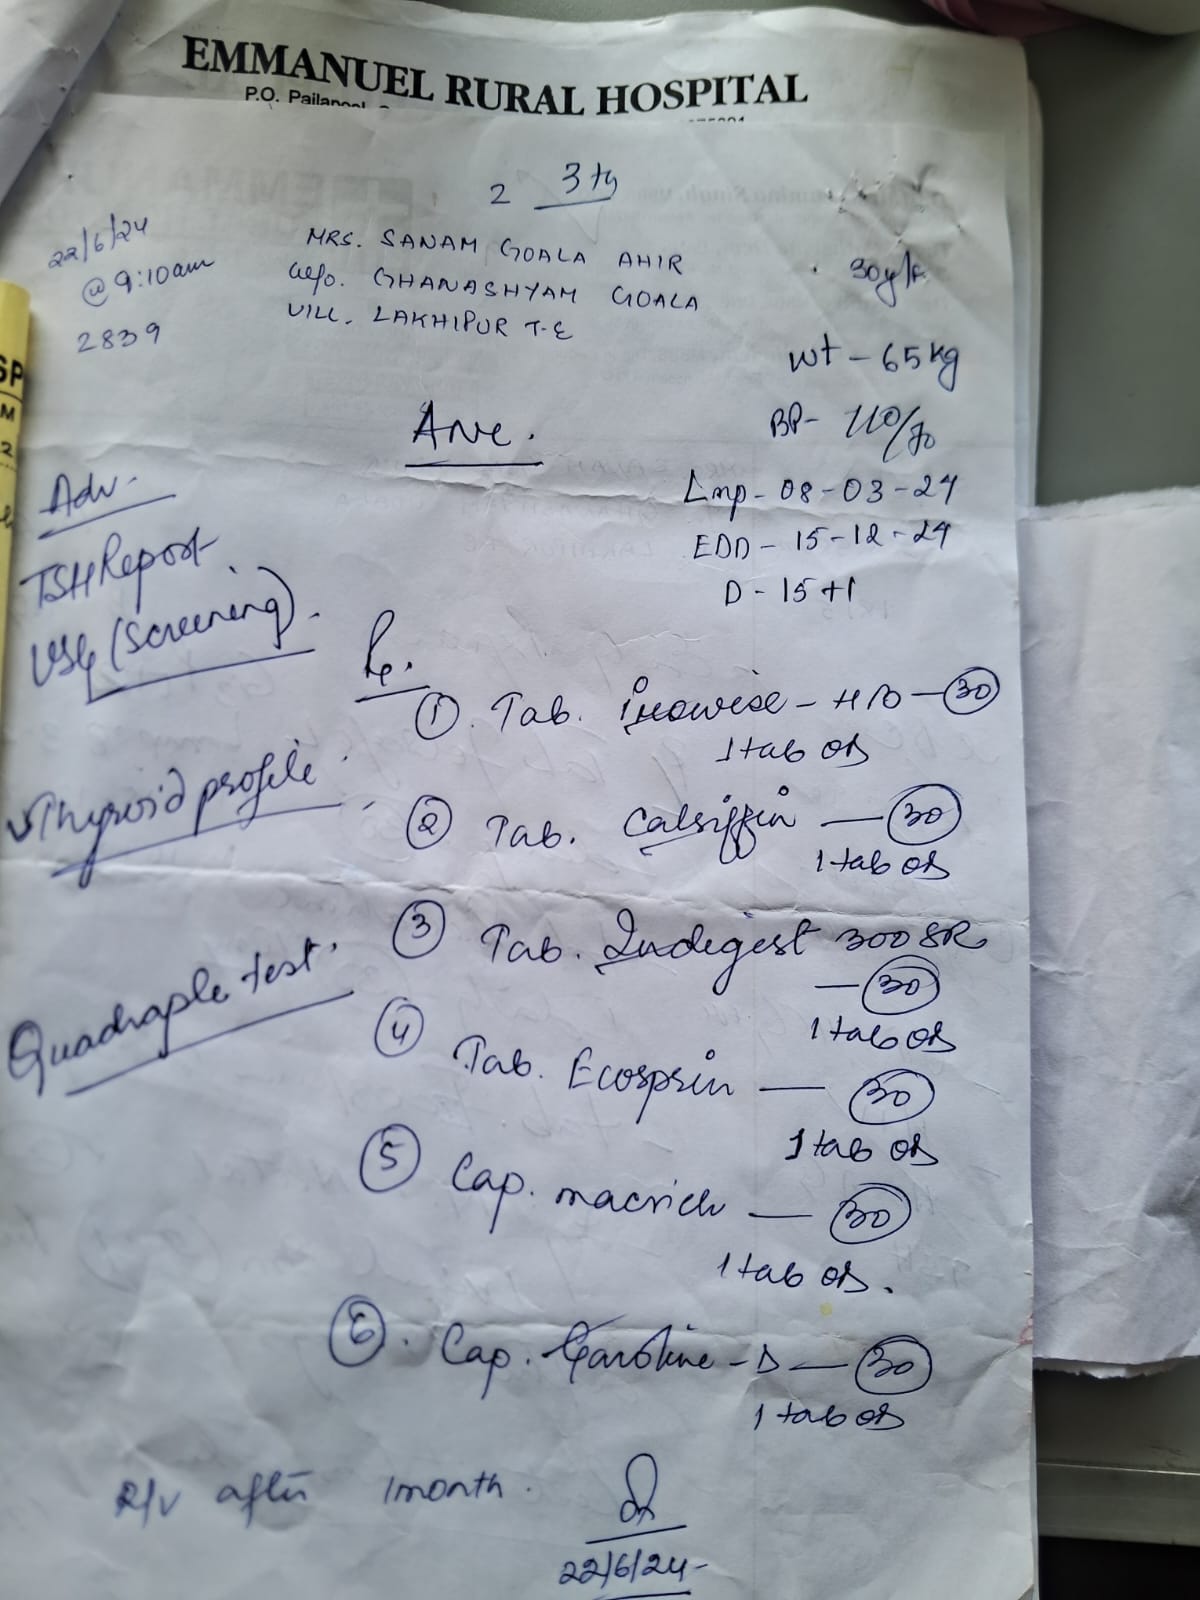 EMMANUEL RURAL HOSPITAL
P.O. Pailapool
2 3
22/6/24
@ 9:10am
2839
MRS. SANAM GOALA AHIR
W/o. GHANASHYAM GOALA
VILL. LAKHIPUR T-E
30y/F
Wt - 65kg
BP- 110/70
ANC.
Lmp - 08-03-24
EDD - 15-12-24
D - 15+1
Adv.
TSH Report
USG (Screening).
Thyroid profile
Quadraple test.
Rx.
① Tab. - 30
1 tab OD
② Tab. — 30
1 tab OD
③ Tab. Indigest 300 SR
— 30
1 tab OD
④ Tab. Ecosprin — 30
1 tab OD
⑤ Cap. macrich — 30
1 tab OD.
⑥. Cap. - D — 30
1 tab OD
R/v after 1 month.
22/6/24